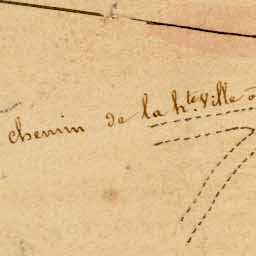 chemin de la hte. ville